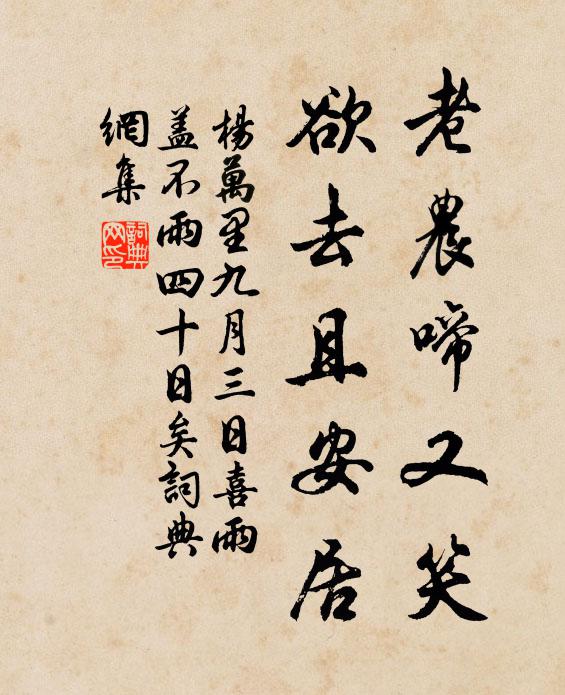 老農啼又笑
欲去且安居
楊萬里九月三日喜雨
蓋不雨四十日矣詞典
網集
詞典網印